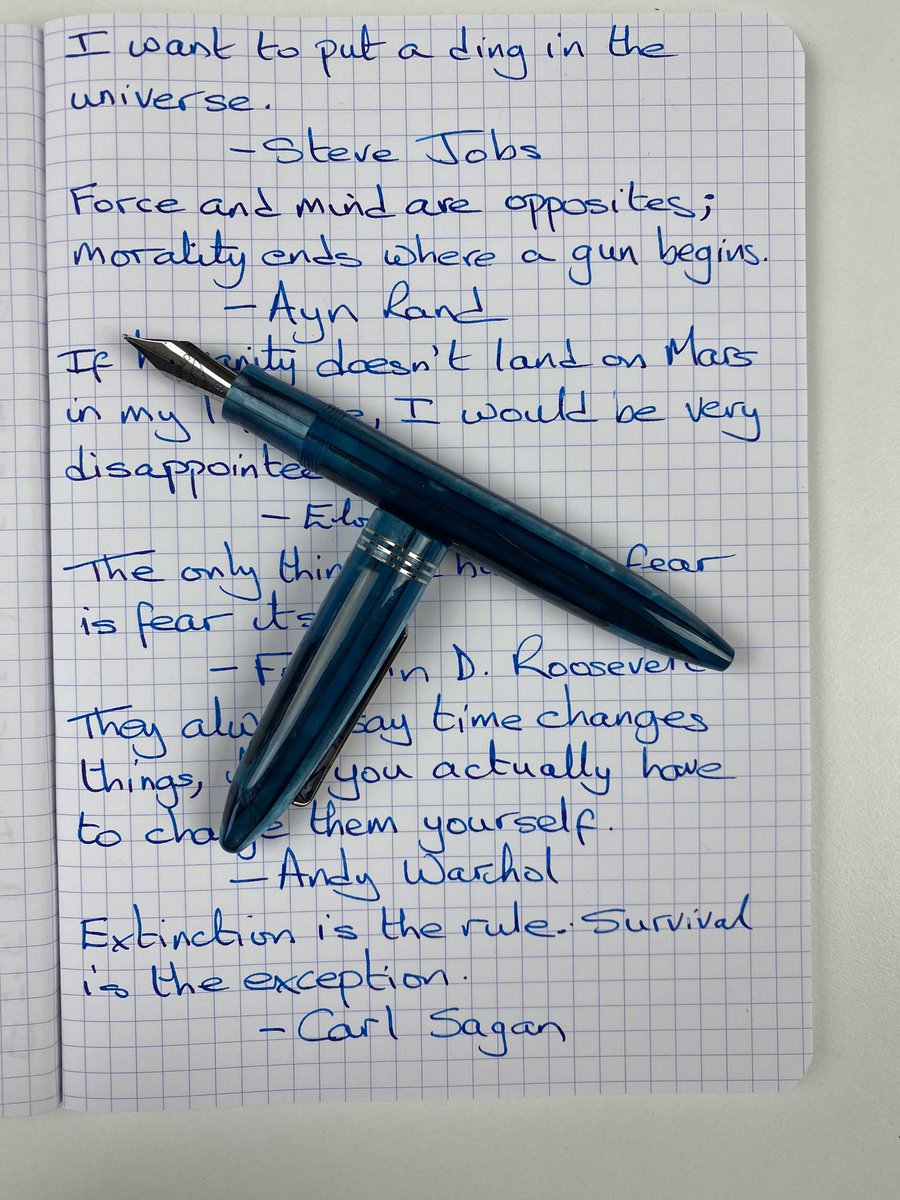 I want to put a ding in the
universe.
- Steve Jobs
Force and mind are opposites;
morality ends where a gun begins.
- Ayn Rand
If doesn't land on Mars
in my I would be very
disappointed
-
The only fear
is fear
- D. Roosevelt
They say time changes
things, you actually have
to change them yourself.
- Andy Warhol
Extinction is the rule. Survival
is the exception.
- Carl Sagan